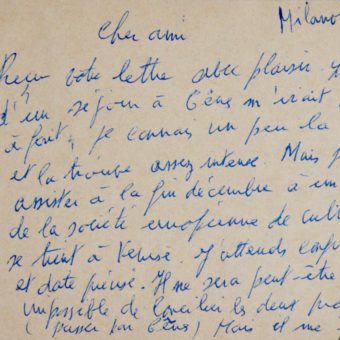 Milano
Cher ami
Reçu votre lettre avec plaisir.
d'un séjour à Gênes m'irait
à fait, je connais un peu la
et la trouve assez intense. Mais
assister à la fin décembre à un
de la société européenne de cult
se tient à Venise. J'attends conf
et date précise. Il ne sera peut-être
impossible de concilier les deux pro
(passer par Gênes) Mais il me